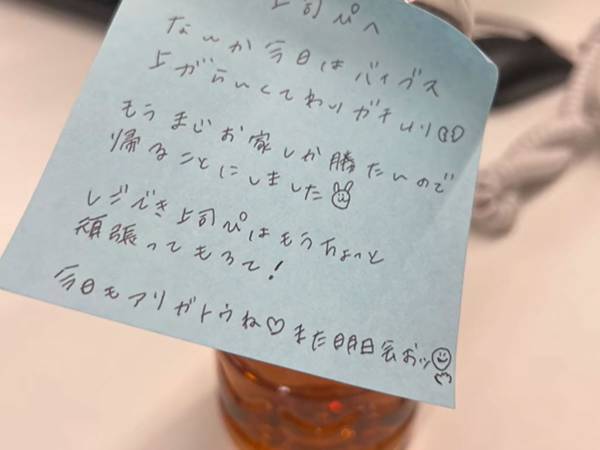 上司ぴへ
なんか今日はバイブス
上がらんくてわりガチめり
もうまじお家しか勝たんので
帰ることにしました
しごでき上司ぴはもうちょっと
頑張ってもろて!
今日もアリガトウね♡また明日会おッ